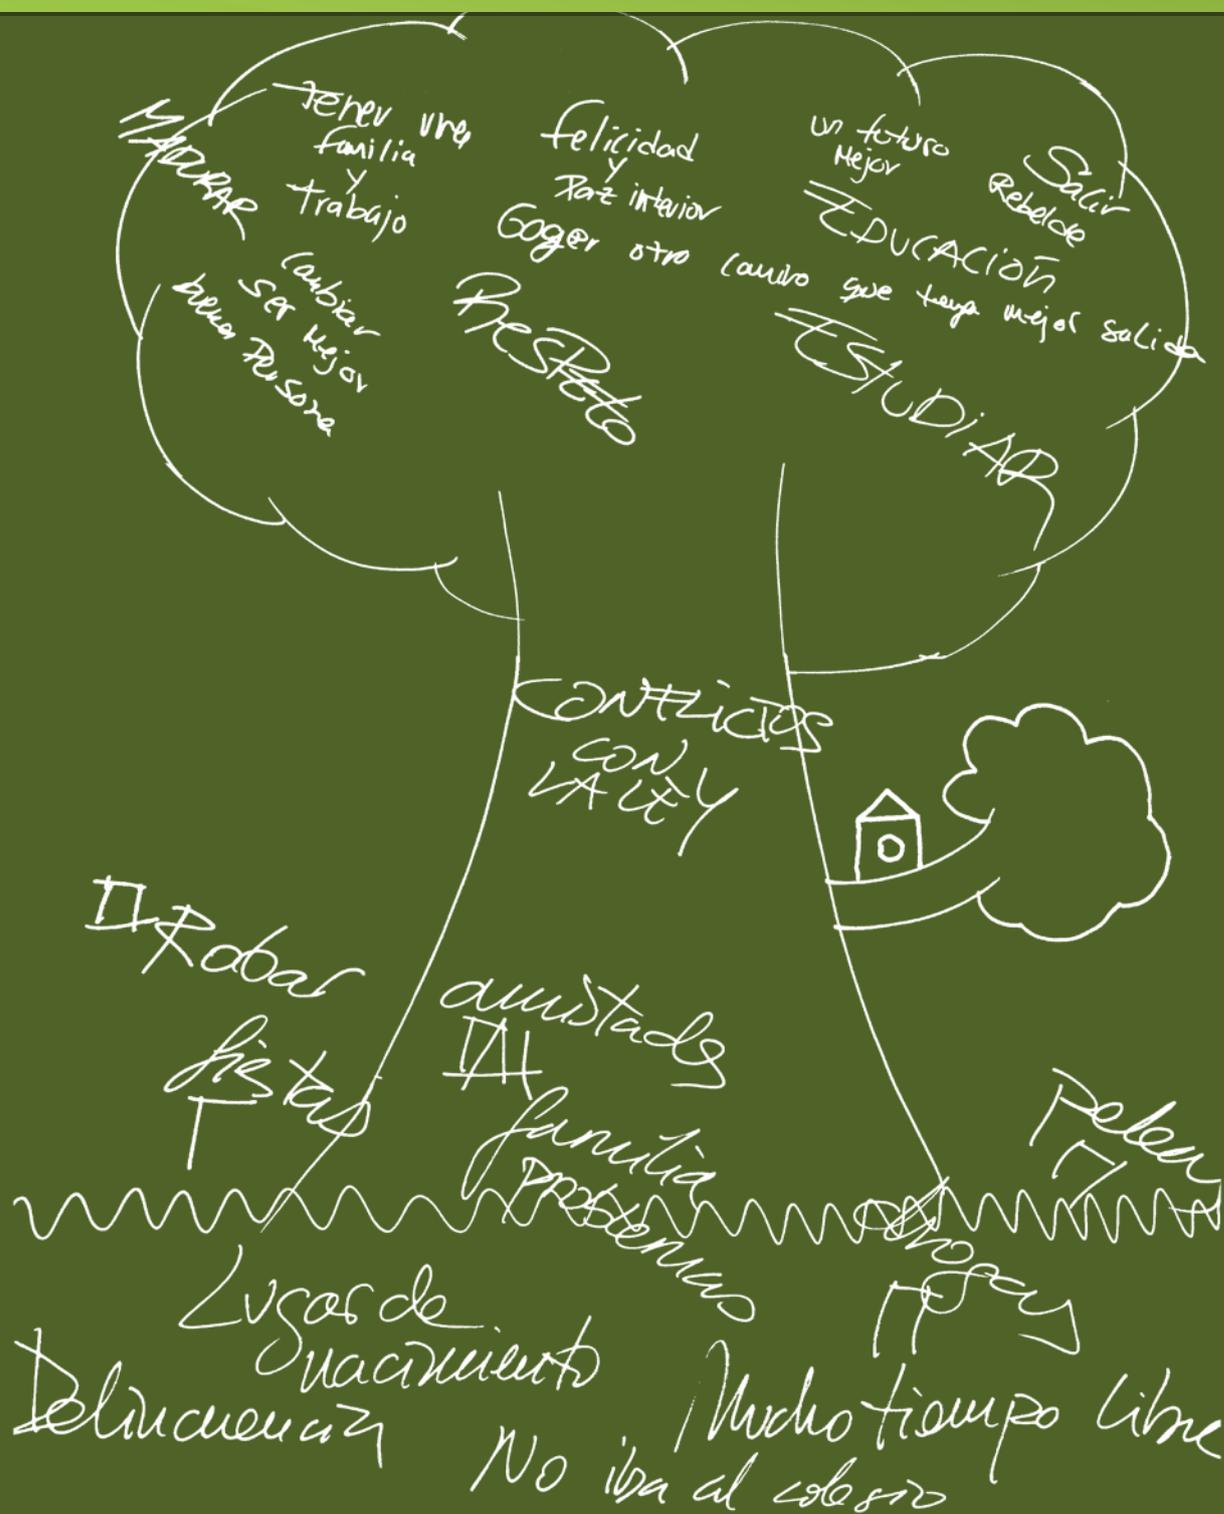 MADURAR
Tener una
familia
y
trabajo
felicidad
y
Paz interior
un futuro
Mejor
Salir
Rebelde
EDUCACIÓN
Coger otro camino que tenga mejor salida
Cambiar
ser mejor
buena Persona
RESPeto
ESTUDiAR
CONFLICTOS
CON
LA LEY
II Robar
fiestas
I
amistades
III
familia
Problemas
Pelea
II
drogas
II
Lugar de
nacimiento
Delincuencia
Mucho tiempo libre
No iba al colegio